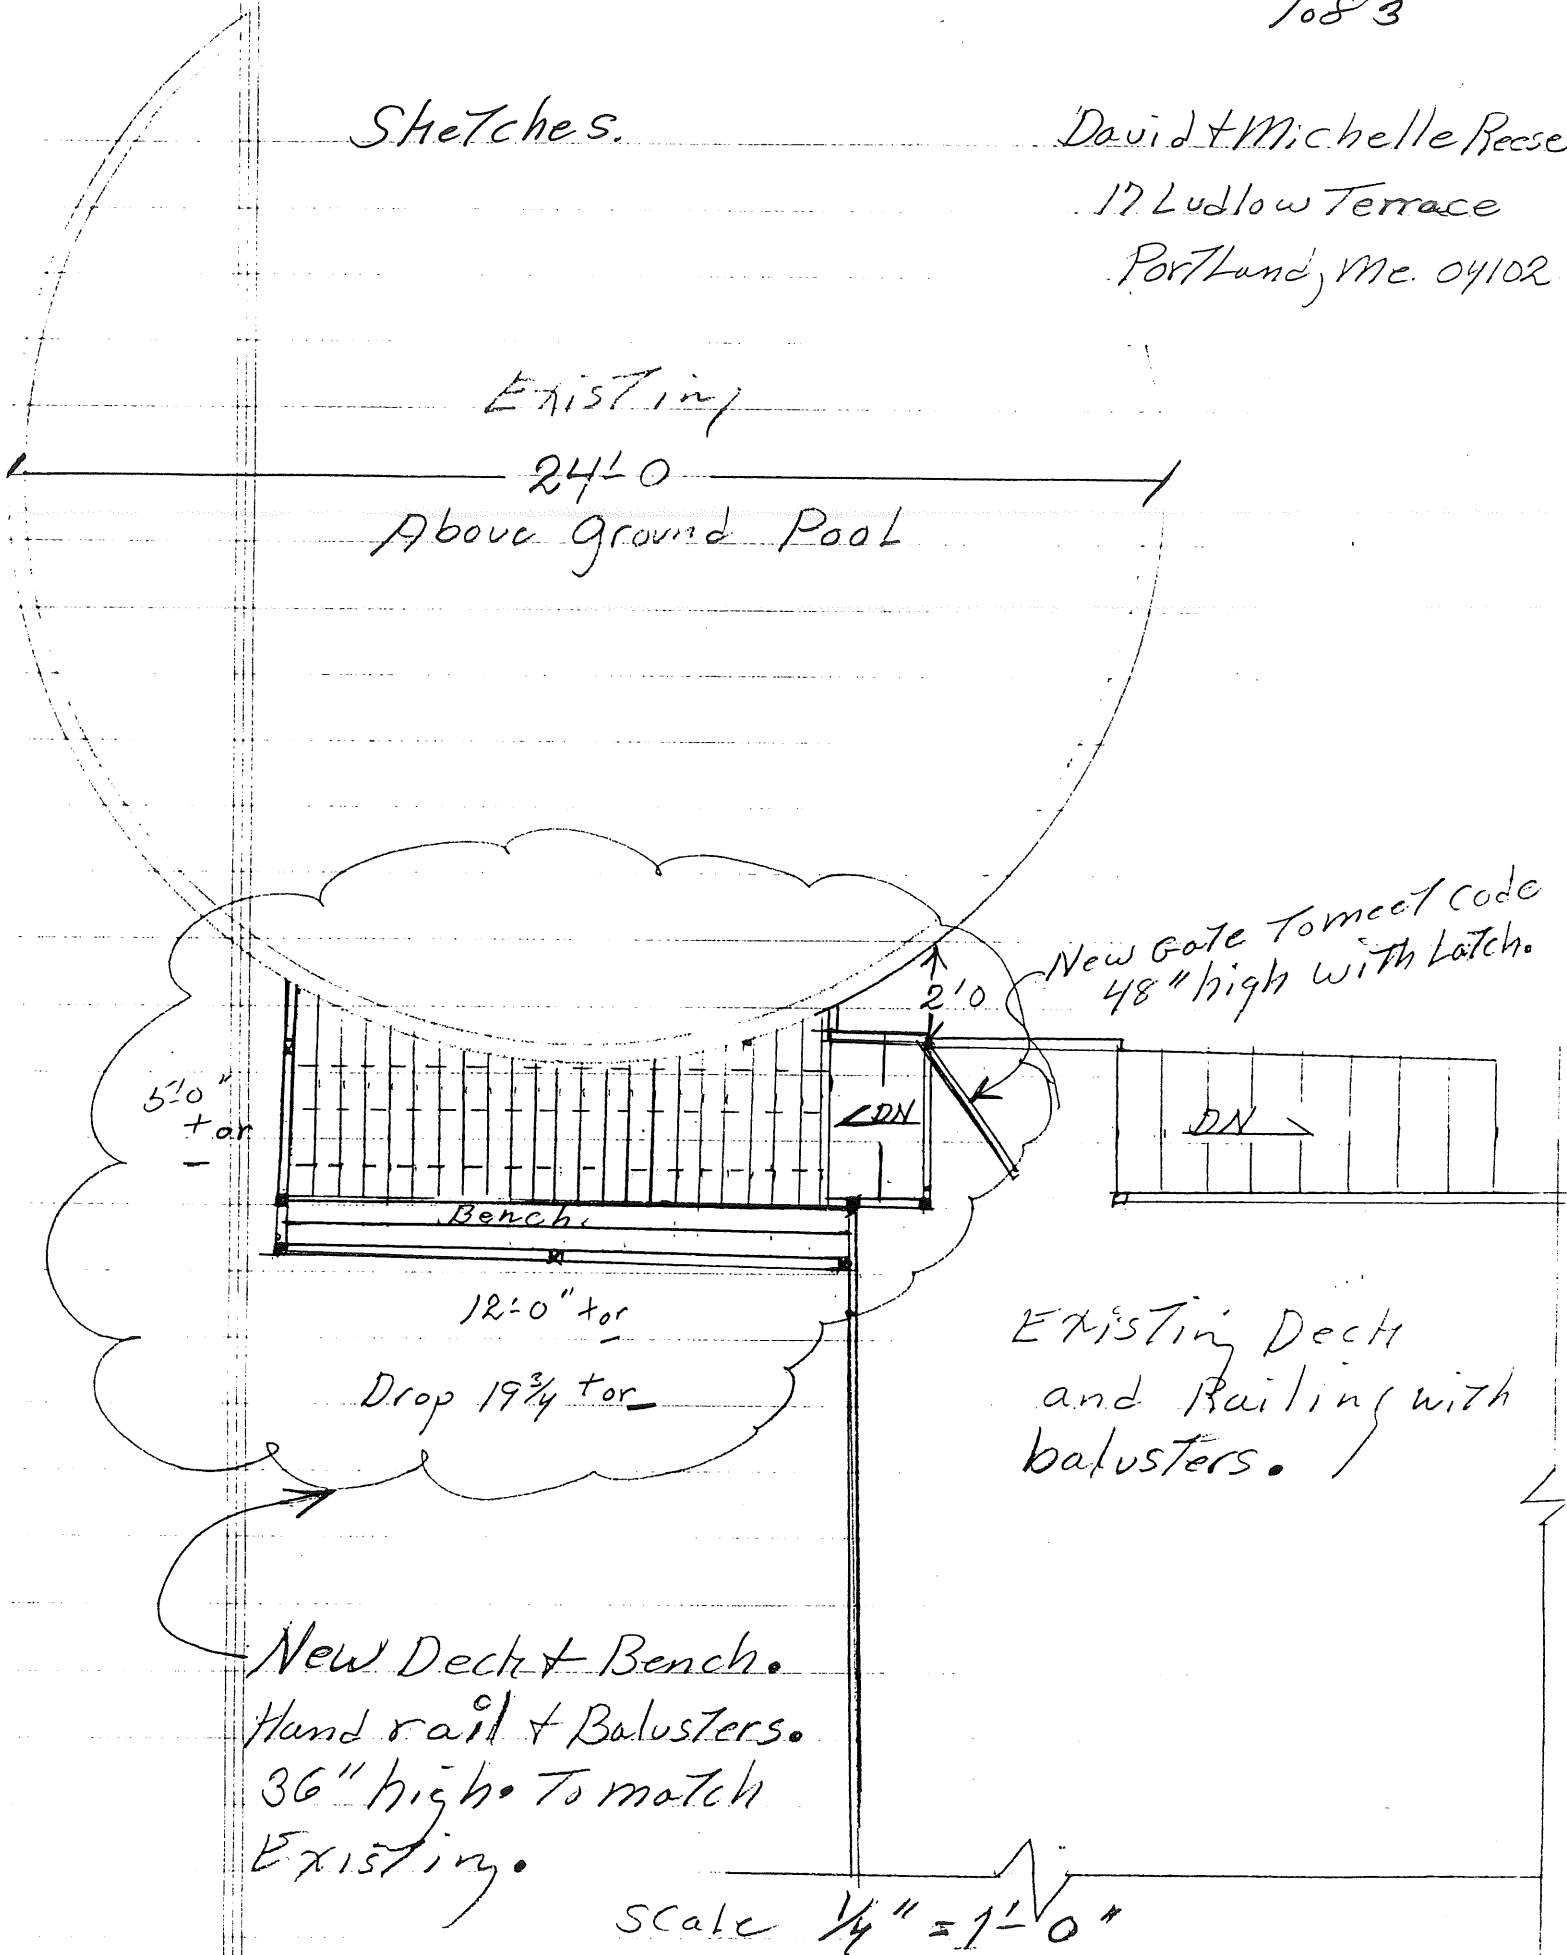 1 of 3
Sketches.
David + Michelle Reese
17 Ludlow Terrace
Portland, Me. 04102
Existing
24'-0
Above Ground Pool
New Gate To meet Code
48" high with Latch.
2'0
5'-0"
+ or
-
<DN
DN
Bench.
12'-0" + or -
Drop 19 3/4 + or -
Existing Deck
and Railing with
balusters.
New Deck + Bench.
Hand rail + Balusters.
36" high. To match
Existing.
Scale 1/4" = 1'-0"